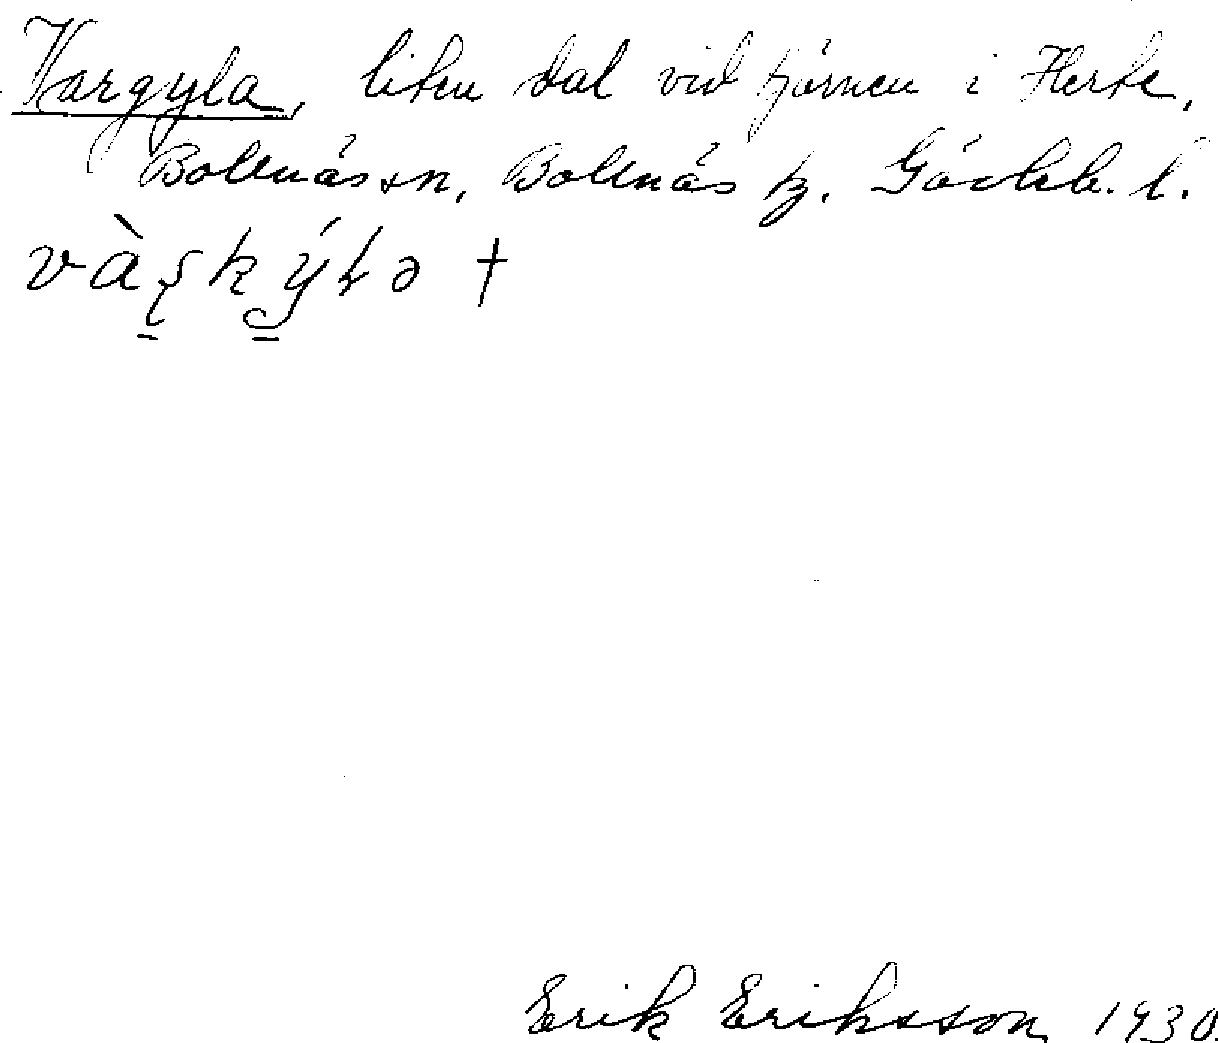 Vargyla, liten dal vid tjärnen i Herte,
Bollnäs sn, Bollnäs tg. Gävleb. l.
Erik Eriksson 1930.